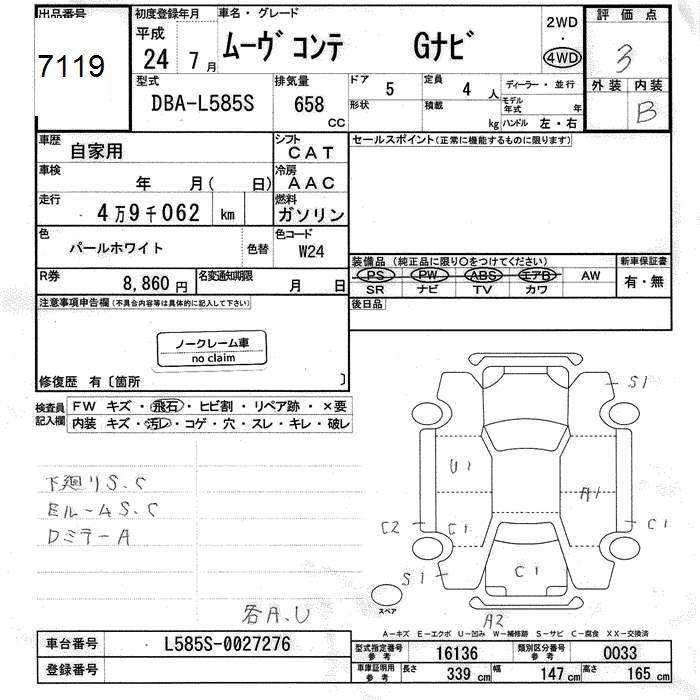 出品番号
7119
初度登録年月
平成
24年7月
車名・グレード
ムーヴ コンテ Gナビ
2WD
・
4WD
評価点
3
外装 内装
B
型式
DBA-L585S
排気量
658
CC
ドア 5 定員 4人
形状 積載 kg
ディーラー・並行
モデル年式 年
ハンドル 左・右
車歴
自家用
シフト
CAT
車検
年 月( 日)
冷房
AAC
走行
4万9千062 km
燃料
ガソリン
色
パールホワイト
色替
色コード
W24
R券 8,860円
名変通知期限 月 日
セールスポイント(正常に機能するものに限ります)
装備品(純正品に限り○をつけてください)
PS PW ABS エアB AW
SR ナビ TV カワ
新車保証書
有・無
後日品
注意事項申告欄(不具合内容等は具体的に記入して下さい)
ノークレーム車
no claim
修復歴 有〔箇所 〕
検査員
記入欄
FW キズ・飛石・ヒビ割・リペア跡・×要
内装 キズ・汚レ・コゲ・穴・スレ・キレ・破レ
下廻りS.C
EルームS.C
DミラーA
各A.U
S1
U1
A1
C2
C1
C1
S1
C1
A2
スペア
A―キズ E―エクボ U―凹み W―補修跡 S―サビ C―腐食 XX―交換済
車台番号 L585S-0027276
登録番号
型式指定番号 参考 16136
類別区分番号 参考 0033
車庫証明用 参考 長さ 339cm 幅 147cm 高さ 165cm